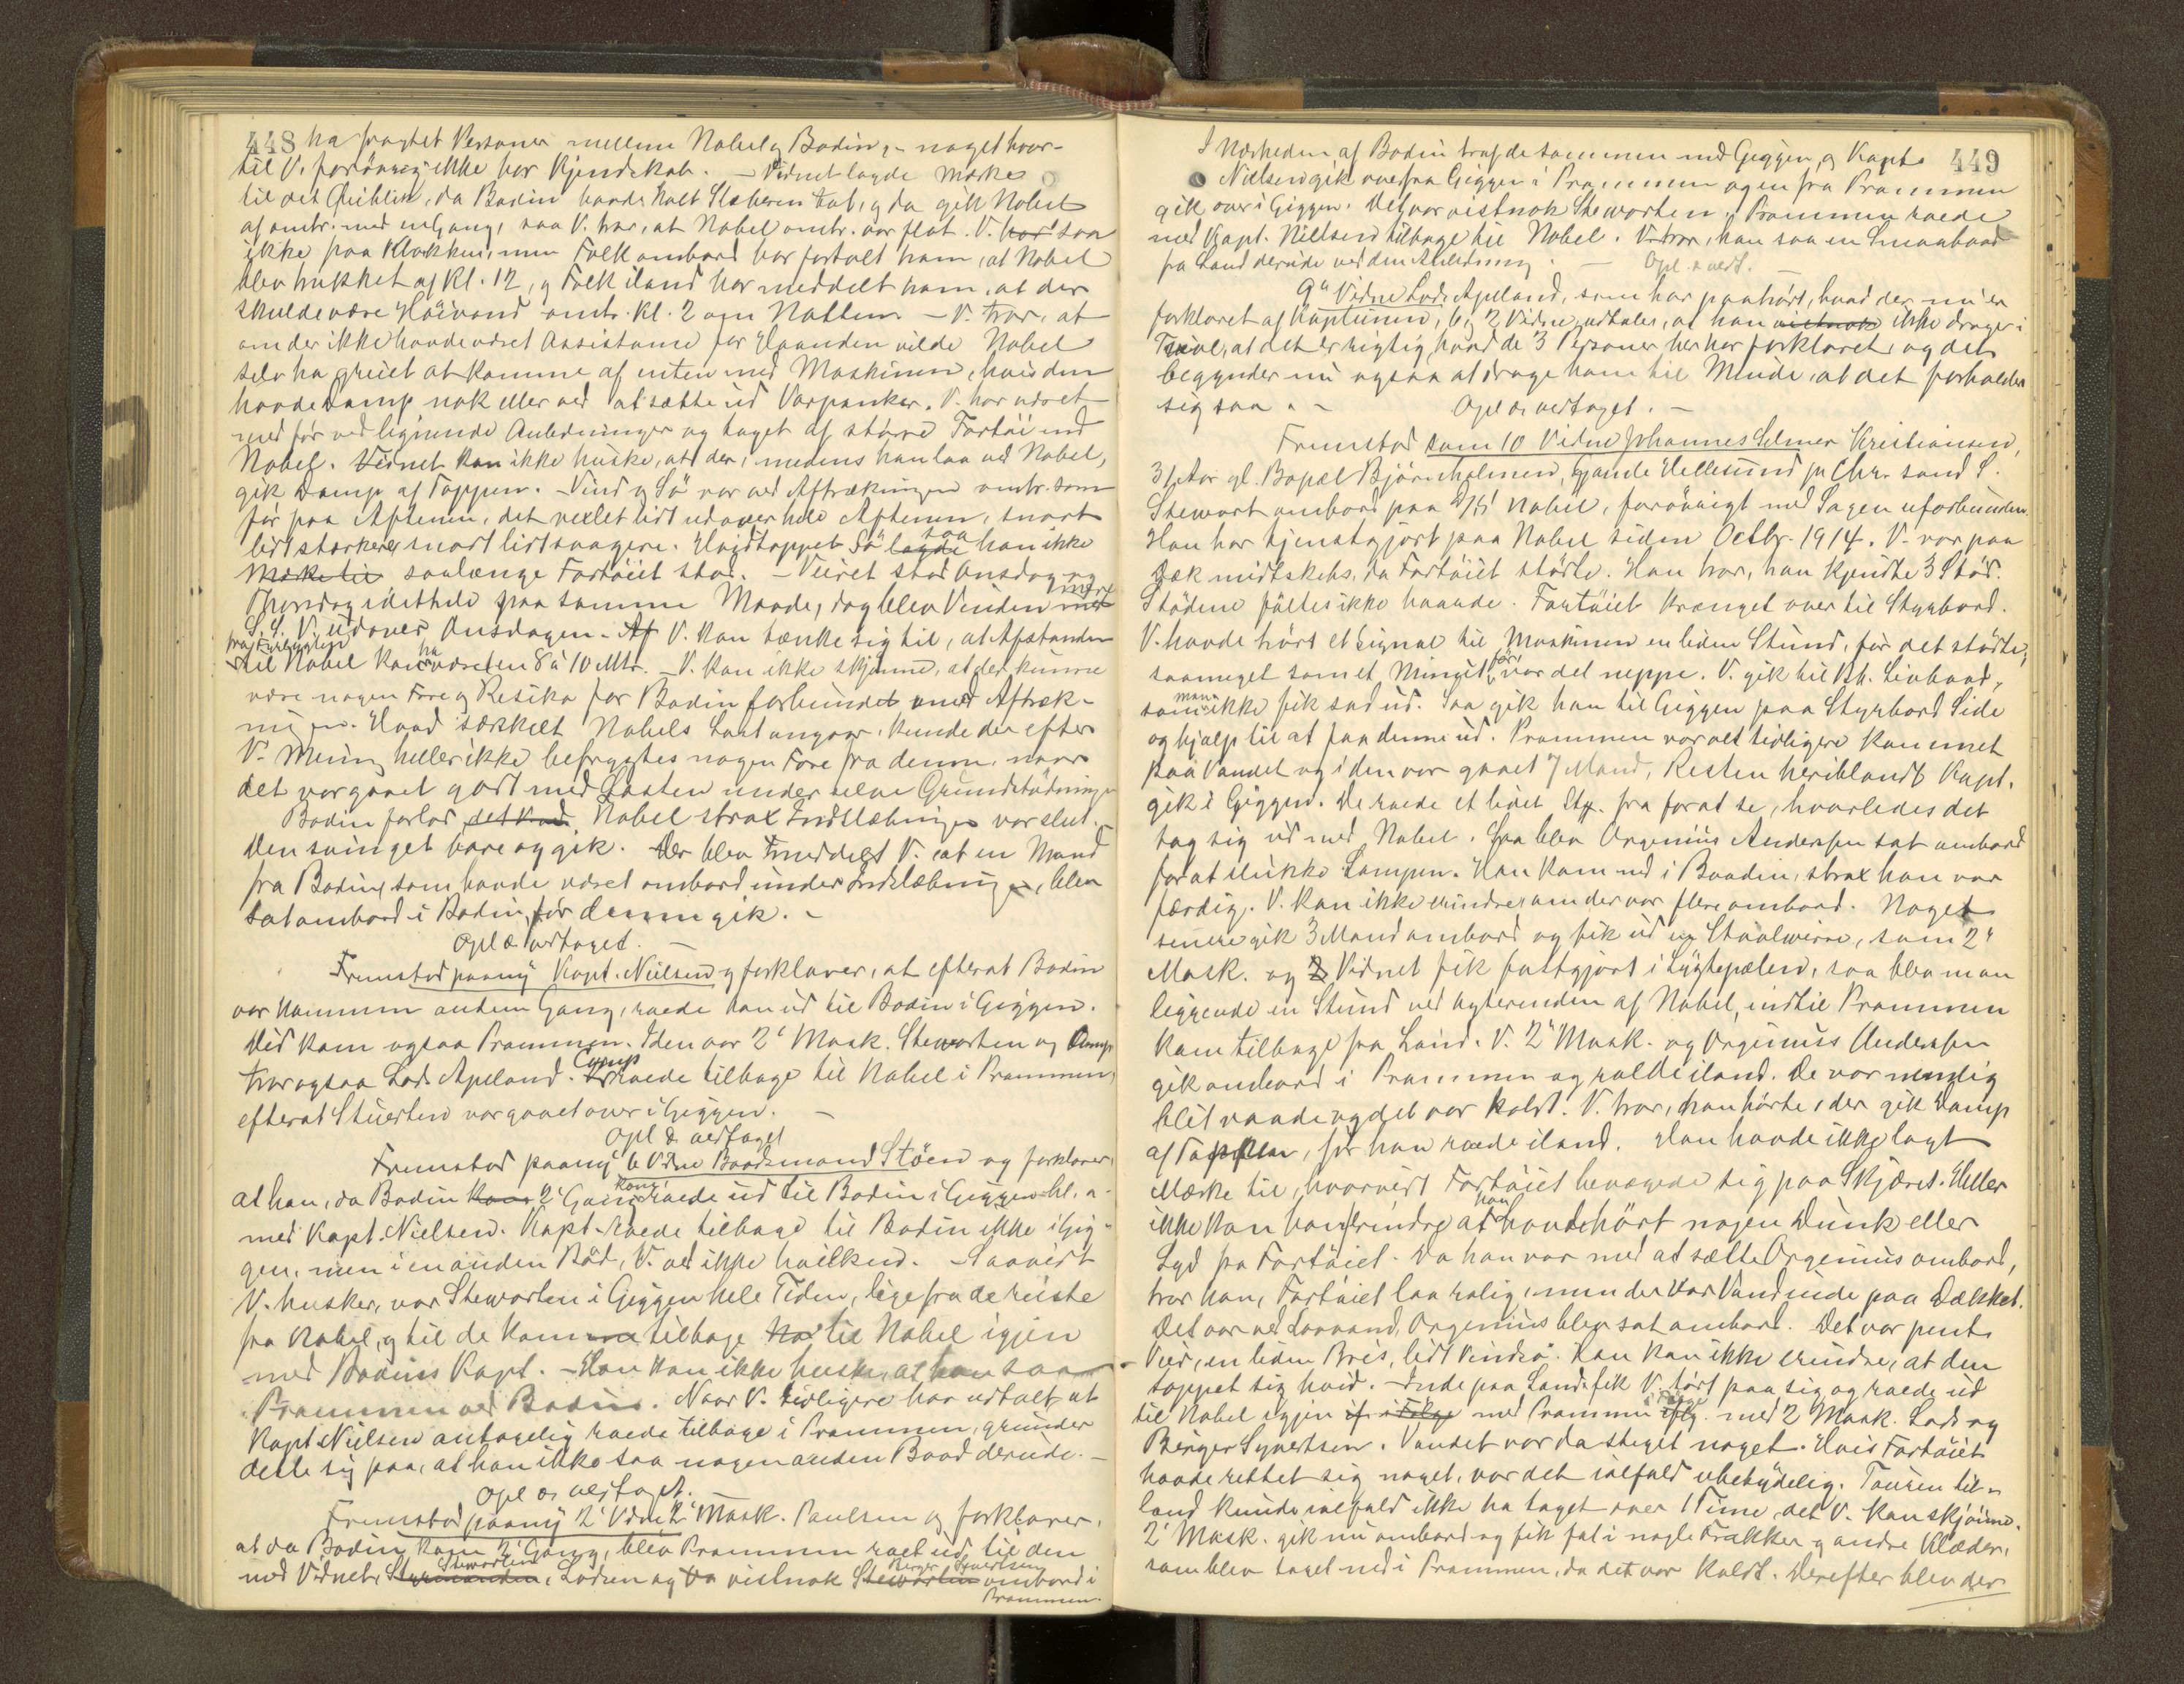 448 ha fragtet Personer mellem Nobel og Bodin, - noget hvor-
til V. forøvrig ikke har Kjendskab. - Vidnet lagde Mærke
til det Øieblik, da Bodin havde halt Slæberen tot, og da gik Nobel
af omtr. med engang, saa V. tror, at Nobel omtr. var flot. V. har saa
ikke paa Klokken, men Folk ombord har fortalt ham, at Nobel
blev trukket af Kl. 12, og Folk iland har meddelt ham, at der
skulde være Høivand omtr. Kl. 2 om Natten. - V. tror, at
om der ikke havde været Assistance for Haanden vilde Nobel
selv ha greiet at komme af enten med Maskinen, hvis den
havde Damp nok eller ved at sætte ud Varpanker. V. har været
med før ved lignende Anledninger og taget af større Fartøi end
Nobel. Vidnet kan ikke huske, at der, medens han laa ved Nobel,
gik Damp af Toppen. Vind og Sø var ved Aftrækningen omtr. som
før paa Aftenen, det vexlet lidt udover hele Aftenen, snart
lidt stærkere, snart lidt svagere. Hvidtoppet Sø lagde saa han ikke
Mærke til saalænge Fartøiet stod. - Veiret stod Onsdag og
Thorsdag idethele paa samme Maade, dog blev Vinden mer
S. S. V. udover Onsdagen. Af V. kan tænke sig til, at Afstanden
fra til Nobel kan ha været en 8 à 10 Mtr. - V. kan ikke skjønne, at der kunne
være nogen Fare og Risiko for Bodin forbundet med Aftræk-
ningen. Hvad særskilt Nobels Last angaar, kunde der efter
V. Mening heller ikke befrygtes nogen Fare fra denne, naar
det var gaaet godt med Lasten under selve Grundstødningen
Bodin forlod det Nobel strax Indslæbningen var slut.
Den svinget bare og gik. Der blev meddelt V. at en Mand
fra Bodin, som havde været ombord under Indslæbningen, blev
sat ombord i Bodin, før denne gik. -
Opl. & vedtaget. -
Fremstod paany Kapt. Nielsen og forklarer, at efterat Bodin
var kommen anden Gang, roede han ud til Bodin i Giggen.
Did kom ogsaa Prammen. I den var 2' Mask. Stewarten og Comp
tror ogsaa Lods Apeland. Comp roede tilbage til Nobel i Prammen,
efterat Stuerten var gaaet over i Giggen. -
Opl. & vedtaget
Fremstod paany 6 Vidne Baadsmand Støen og forklarer,
at han, da Bodin kom 2' Gang kom roede ud til Bodin i Giggen bl. a.
med Kapt. Nielsen. Kapt. roede tilbage til Bodin ikke i Gig-
gen, men i en anden Båd, V. ved ikke hvilken. Saavidt
V. husker, var Stewarten i Giggen hele Tiden, lige fra de reiste
fra Nobel, og til de kom tilbage til Nobel igjen
med Bodins Kapt. - Han kan ikke huske, at han saa
Prammen ved Bodin. Naar V. tidligere har udtalt at
Kapt. Nielsen antagelig roede tilbage i Prammen, grunder
dette sig paa, at han ikke saa nogen anden Baad derude. -
Opl. & vedtaget. -
Fremstod paany 2' Vidne 2' Mask. Paulsen og forklarer,
at da Bodin kom 2' Gang, blev Prammen roet ud til den
med Vidnet, Styrmanden Stewarten, Lodsen og vistnok Stewarten Berge Syvertsen ombord i
Prammen.
449
I Nærheden af Bodin traf de sammen med Giggen, og Kapt.
Nielsen gik over fra Giggen i Prammen og en fra Prammen
gik over i Giggen. Det var vistnok Stewarten. Prammen roede
med Kapt. Nielsen tilbage til Nobel. V. tror, han saa en Smaabaad
fra Land derude ved den Anledning. - Opl. & vedt. -
9' Vidne Lods Apeland, som har paahørt, hvad der nu er
forklaret af Kaptunen, 6 og 2 Vidne, udtaler, at han vistnok ikke drager i
Tvivl, at det er rigtig, hvad de 3 Personer her har forklaret, og det
begynder nu ogsaa at drage ham til Minde, at det forholder
sig saa. - Opl. & vedtaget. -
Fremstod som 10 Vidne Johannes Selmer Kristiansen,
31 Aar gl. Bopæl Bjørnholmen, Gaude Hellesund pr Chr. sand S.
Stewart ombord paa D/S Nobel, forøvrigt med Sagen uforbunden.
Han har tjenstgjort paa Nobel siden Octbr. 1914. V. var paa
Dæk midtskibs, da Fartøiet stødte. Han tror, han kjendte 3 Stød.
Stødene føltes ikke haarde. Fartøiet krænget over til Styrbord.
V. havde hørt et Signal til Maskinen en liden Stund, før det stødte,
saameget som et Minut før var det neppe. V. gik til Bb. Livbaad,
som man ikke fik sat ud. Saa gik han til Giggen paa Styrbord Side
og hjalp til at faa denne ud. Prammen var alt tidligere kommet
paa Vandet og i den var gaaet 7 Mand, Resten heriblandt Kapt.
gik i Giggen. De roede et lidet Sty. fra for at se, hvorledes det
tog sig ud med Nobel. Saa blev Orgenius Andersen sat ombord
for at slukke Lampen. Han kom ned i Baaden, strax han var
færdig. V. kan ikke erindre, om der var flere ombord. Noget
senere gik 3 Mand ombord og fik ud en Staalwire, som 2'
Mask. og 2 Vidnet fik fastgjort i Lygtepælen, saa blev man
liggende en Stund ved Agterenden af Nobel, indtil Prammen
kom tilbage fra Land. V. 2' Mask. og Orgenius Andersen
gik ombord i Prammen og rodde iland. De var nemlig
blit vaade og det var koldt. V. tror, han hørte, der gik Damp
af Toppen, før han roede iland. Han havde ikke lagt
Mærke til, hvorvidt Fartøiet bevægede sig paa Skjæret. Heller
ikke kan han erindre at han havde hørt nogen Dunk eller
Lyd fra Fartøiet. Da han var med at sætte Orgenius ombord,
tror han, Fartøiet laa rolig, men der var Vand inde paa Dækket.
Det var ved Lavvand, Orgenius blev sat ombord. Det var pent
Veir, en liden Bris, lidt Vindsø. Han kan ikke erindre, at den
toppet sig hvid. - Inde paa Land fik V. tørt paa sig og roede ud
til Nobel igjen if. i Følge med Prammen ifølge med 2 Mask. Lods og
Berger Syvertsen. Vandet var da steget noget. Hvis Fartøiet
havde rettet sig noget, var det ialfald ubetydelig. Touren til
land kunde ialfald ikke ha taget over 1 Time, det V. kan skjønne.
2' Mask. gik nu ombord og fik fat i nogle Frakker og andre Klæder,
som blev taget ned i Prammen, da det var koldt. Derefter blev der